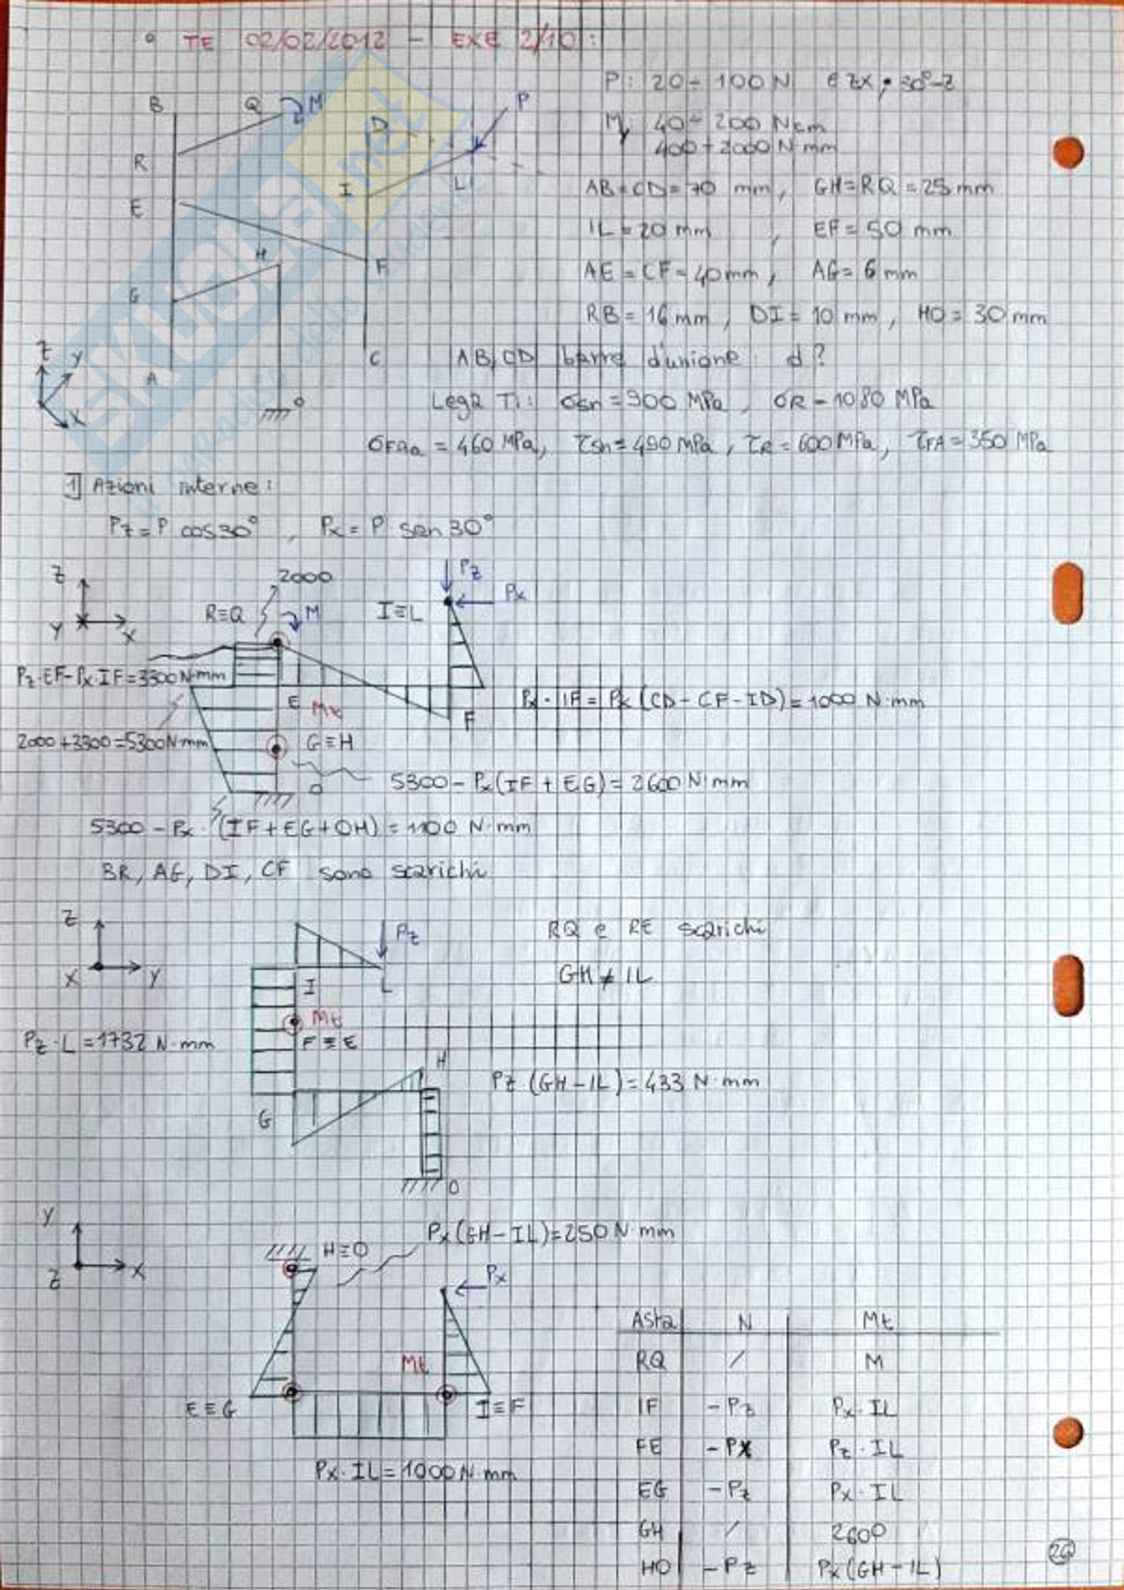 ° TE 02/02/2012 - EXE 2/10:
P: 20 ÷ 100 N ∈ ZX, 30°-Z
M: 40 ÷ 200 Ncm
400 ÷ 2000 N mm
B Q M D P
R I L
E
H F
G
Z Y
A C O
X
AB=CD=70 mm, GH=RQ=25 mm
IL=20 mm, EF=50 mm
AE=CF=40mm, AG=6 mm
RB=16 mm, DI=10 mm, HO=30 mm
AB, CD barre d'unione: d?
Lega Ti: σsn=900 MPa, σR=1080 MPa
σFAa=460 MPa, τsn=490 MPa, τR=600 MPa, τFA=350 MPa
1] Azioni interne:
Pz=P cos30°, Px=P sen30°
Z
Y X
2000
R≡Q M I≡L Pz
Px
Pz·EF-Px·IF=3300N·mm
E Mt F
Px·IF=Px(CD-CF-ID)=1000 N·mm
2000+3300=5300N·mm G≡H
O 5300-Px(IF+EG)=2600 N·mm
5300-Px·(IF+EG+OH)=1100 N·mm
BR, AG, DI, CF sono scarichi
Z
X Y
Pz RQ e RE scarichi
I L GH≠IL
Mt
Pz·L=1732 N·mm F≡E
H
G Pz(GH-IL)=433 N·mm
O
Y
Z X
Px(GH-IL)=250 N·mm
H≡O
Px
Mt
E≡G I≡F
Px·IL=1000N·mm
Asta N Mt
RQ / M
IF -Pz Px·IL
FE -Px Pz·IL
EG -Pz Px·IL
GH / 2600
HO -Pz Px(GH-IL)
26
SKUOLA.net